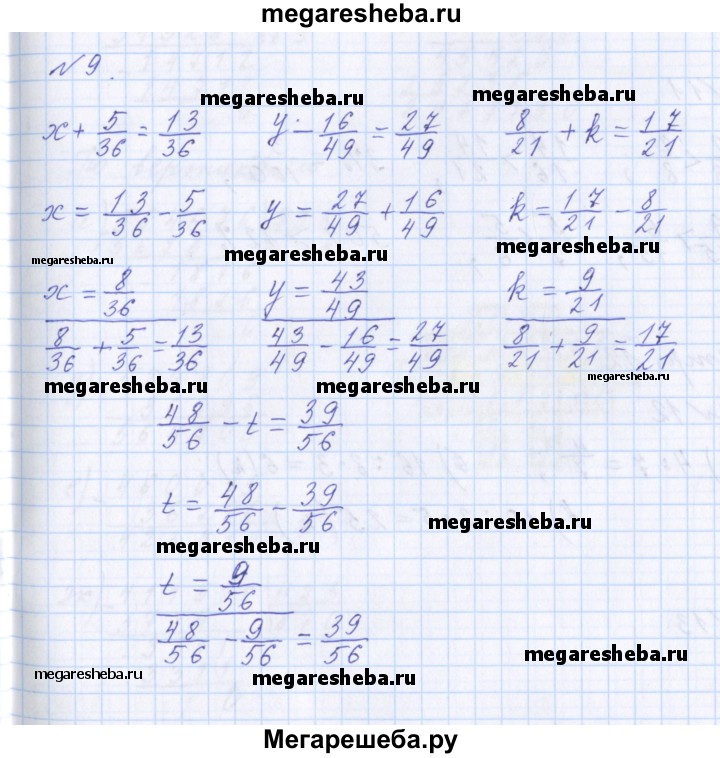 megaresheba.ru
№9.
megaresheba.ru megaresheba.ru
x + 5/36 = 13/36 y - 16/49 = 27/49 8/21 + k = 17/21
x = 13/36 - 5/36 y = 27/49 + 16/49 k = 17/21 - 8/21
megaresheba.ru megaresheba.ru megaresheba.ru
x = 8/36 y = 43/49 k = 9/21
8/36 + 5/36 = 13/36 43/49 - 16/49 = 27/49 8/21 + 9/21 = 17/21
megaresheba.ru megaresheba.ru megaresheba.ru
48/56 - t = 39/56
t = 48/56 - 39/56
megaresheba.ru
megaresheba.ru
t = 9/56
48/56 - 9/56 = 39/56
megaresheba.ru megaresheba.ru megaresheba.ru
Мегарешеба.ру